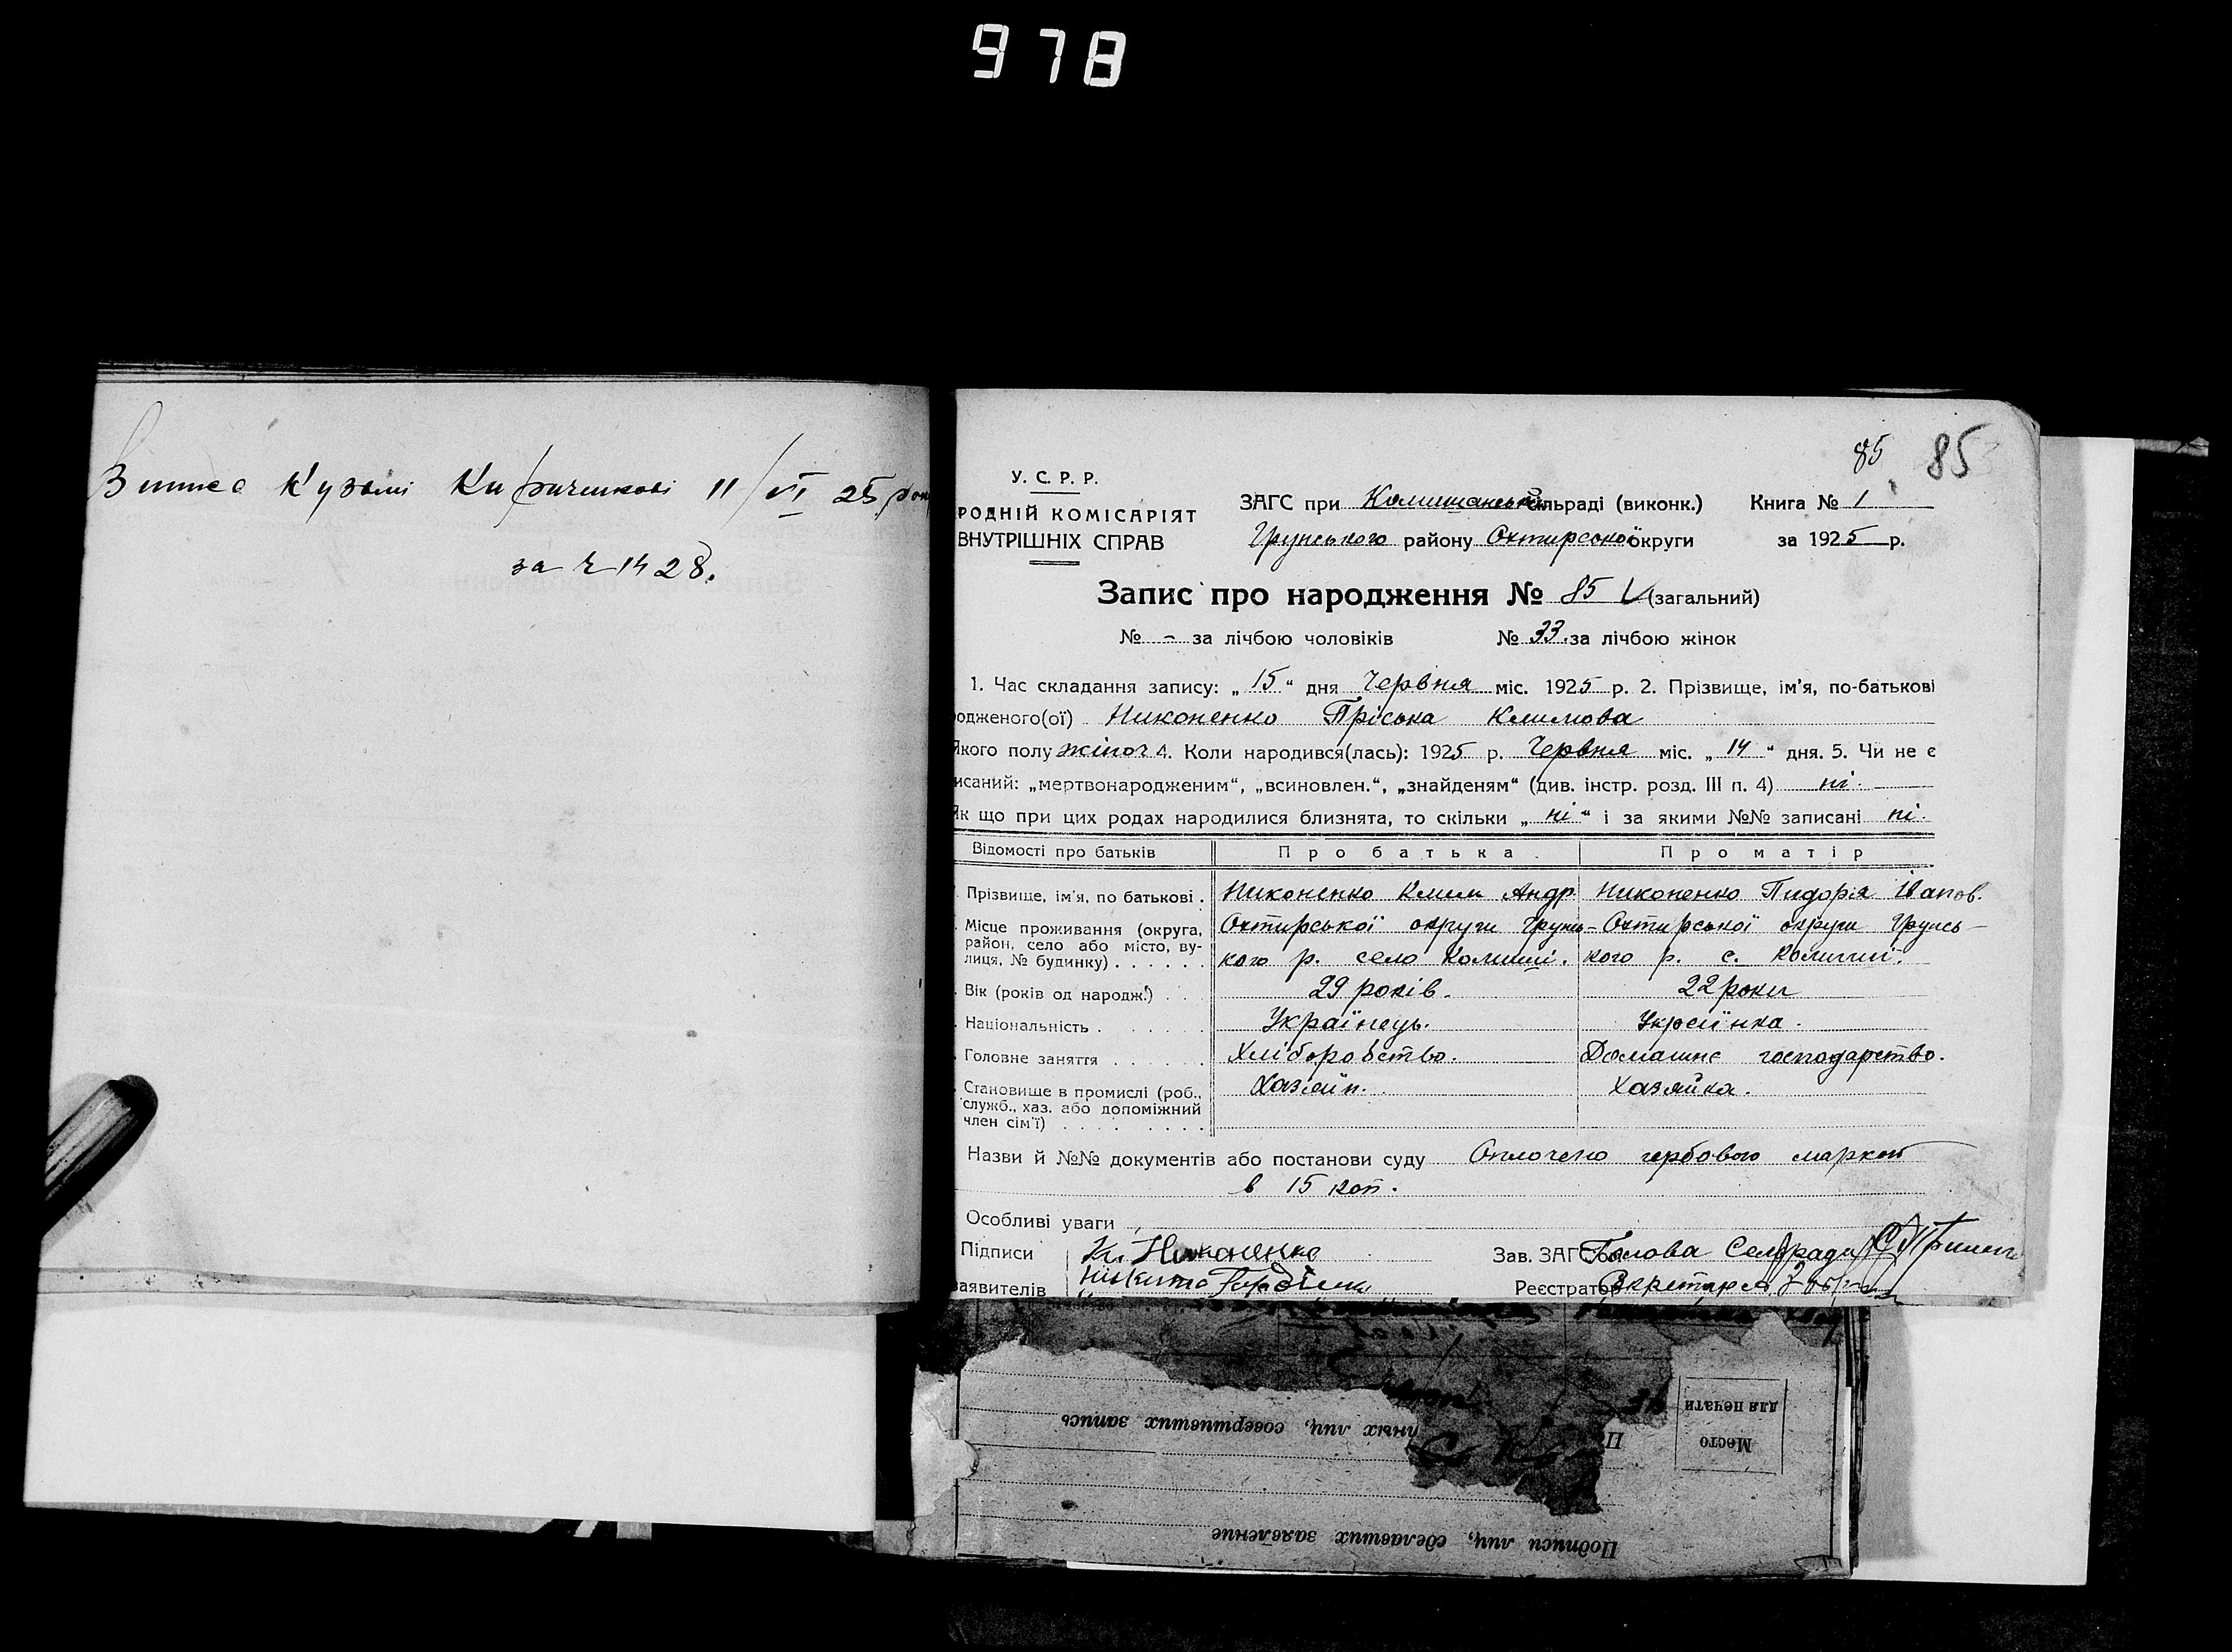 978
Кузьмі Кириченкові 11/VI 25
за № 1428.
85 85
У. С. Р. Р.
РОДНІЙ КОМІСАРІЯТ
ВНУТРІШНІХ СПРАВ
ЗАГС при Комишанській сільраді (виконк.) Книга № 1
Грунського району Охтирської округи за 1925 р.
Запис про народження № 85 (загальний)
№ - за лічбою чоловіків № 33 за лічбою жінок
1. Час складання запису: „15“ дня Червня міс. 1925 р. 2. Прізвище, ім'я, по-батькові
одженого(ої) Никоненко Пріська Климова
Якого полу жіноч 4. Коли народився(лась): 1925 р. Червня міс. „14“ дня. 5. Чи не є
исаний: „мертвонародженим“, „всиновлен.“, „знайденям“ (див. інстр. розд. III п. 4) ні.
Як що при цих родах народилися близнята, то скільки „ні“ і за якими №№ записані ні.
Відомості про батьків Про батька. Про матір
Прізвище, ім'я, по батькові . Никоненко Клим Андр. Никоненко Пидоря Іванов.
Місце проживання (округа, район, село або місто, вулиця, № будинку) . . . . . . Охтирської округи Грунь- Охтирської округи Грунсь-
кого р. село Комиші. кого р. с. Комиші.
Вік (років од народж.) . . 29 років. 22 роки
Національність . . . . . Українець. Українка.
Головне заняття . . . . . Хліборобство. Домашнє господарство.
Становище в промислі (роб., Хазяїн. Хазяйка.
служб., хаз. або допоміжний
член сім'ї) . . . . . . . .
Назви й №№ документів або постанови суду Оплочено гербовою маркою
в 15 коп.
Особливі уваги
Підписи Кл. Никоненко Зав. ЗАГС'ом Голова Сельради
заявителів Реєстратор Секретарь
нных лиц, совершивших запись
Место
для печати
Подписи лиц, сделавших заявление